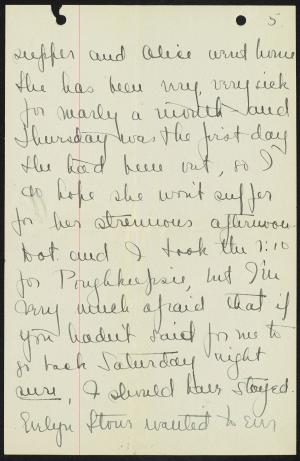 5.
supper and Alice went home
She has been very, very sick
for nearly a month and
Thursday was the first day
she had been out, so I
do hope she won't suffer
for her strenuous afternoon.
Dot and I took the 7:10
for Poughkeepsie, but I'm
very much afraid that if
you hadn't said for me to
go back Saturday night
sure, I should have stayed.
Evelyn wanted to